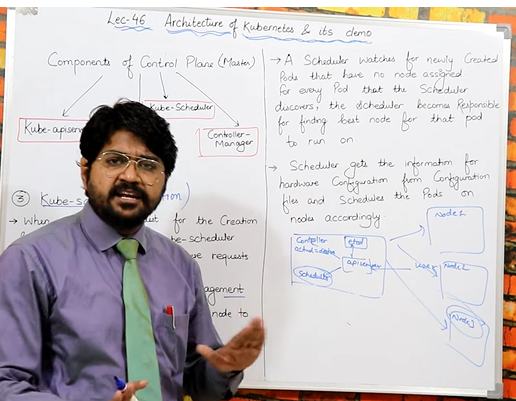 Lec-46 Architecture of Kubernetes & its demo
Components of Control Plane (Master)
Kube-Scheduler
Kube-apiser
Controller-
Manager
③ Kube-s
→ When for the Creation
be-scheduler
requests
agement
node to
→ A Scheduler watches for newly Created
Pods that have no node assigned
for every Pod that the Scheduler
discovers, the scheduler becomes Responsible
for finding best node for that pod
to run on
→ Scheduler gets the information for
hardware Configuration from Configuration
files and Schedules the Pods on
nodes accordingly.
Controller
etcd
apiserver
Scheduler
Node1
Node2
Node3